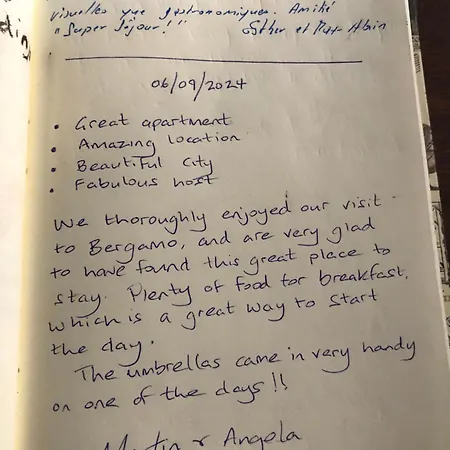 visuelles que gastronomiques. Amitié
"Super Séjour!" Esther et Alain
06/09/2024
• Great apartment
• Amazing location
• Beautiful City
• Fabulous host
We thoroughly enjoyed our visit
to Bergamo, and are very glad
to have found this great place to
stay. Plenty of food for breakfast,
which is a great way to start
the day.
The umbrellas came in very handy
on one of the days!!
Martin & Angela